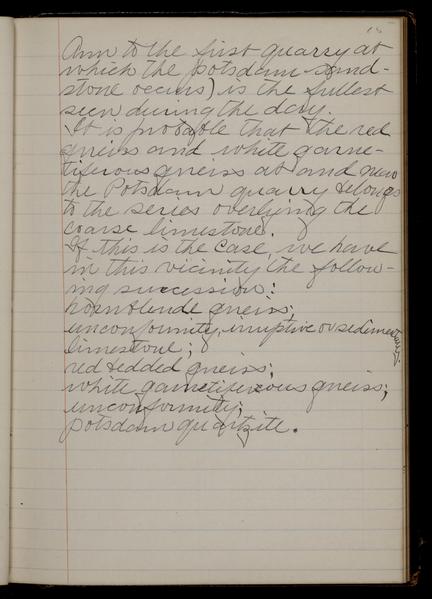 Ann to the first quarry at
which the potsdam sand-
stone occurs) is the fullest
seen during the day.
It is probable that the red
gneiss and white garne-
tiferous gneiss at and near
the Potsdam quarry belongs
to the series overlying the
coarse limestone.
If this is the case, we have
in this vicinity the follow-
ing succession:
hornblende gneiss;
unconformity, irruptive or sedimentary;
limestone;
red bedded gneiss;
white garnetiferous gneiss;
unconformity;
potsdam quartzite.